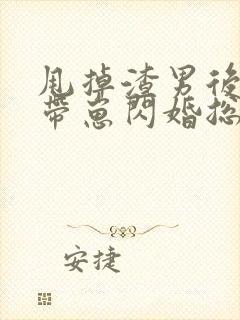 甩掉渣男後
帶崽閃婚総
安捷